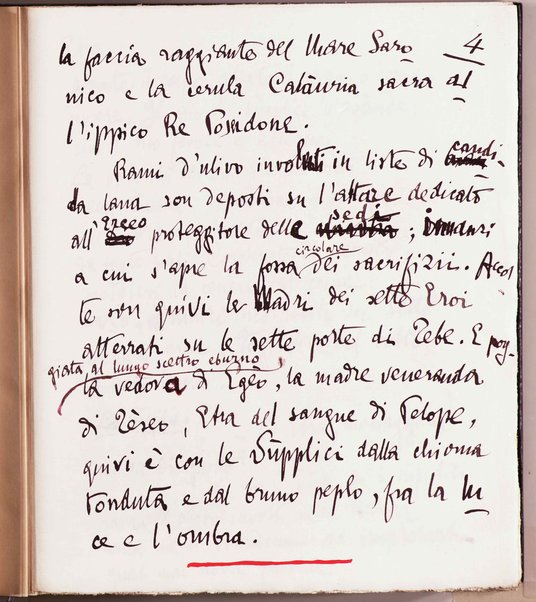 4
la faccia raggiante del Mare Saro
nico e la cerula Calàuria sacra al
l'ippico Re Posidone.
Rami d'ulivo involuti in liste di candi-
da lana son deposti su l'altare dedicato
all'Erceo proteggitore delle sedi; innanzi
a cui s'apre la fossa circolare dei sacrifizii. Accol
te son quivi le Madri dei sette Eroi
atterrati su le sette porte di Tebe. E pog-
giata al lungo scettro eburno
la vedova di Egèo, la madre veneranda
di Tèseo, Etra del sangue di Pelope,
quivi è con le Sùpplici dalla chioma
tonduta e dal bruno peplo, fra la lu
ce e l'ombra.